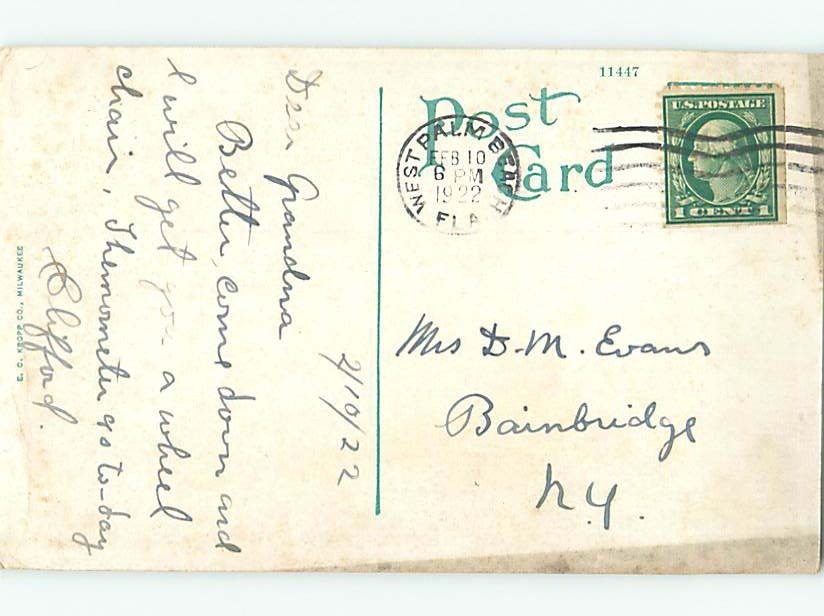 11447
Post
Card
U.S. POSTAGE
1 CENT 1
WEST PALM BEACH
FEB 10
6 PM
1922
FLA.
2/10/22
Dear Grandma
Better, come down and
I will get you a wheel
chair, Thermometer to-day
Clifford.
Mrs D. M. Evans
Bainbridge
N.Y.
E. C. KROPP CO., MILWAUKEE